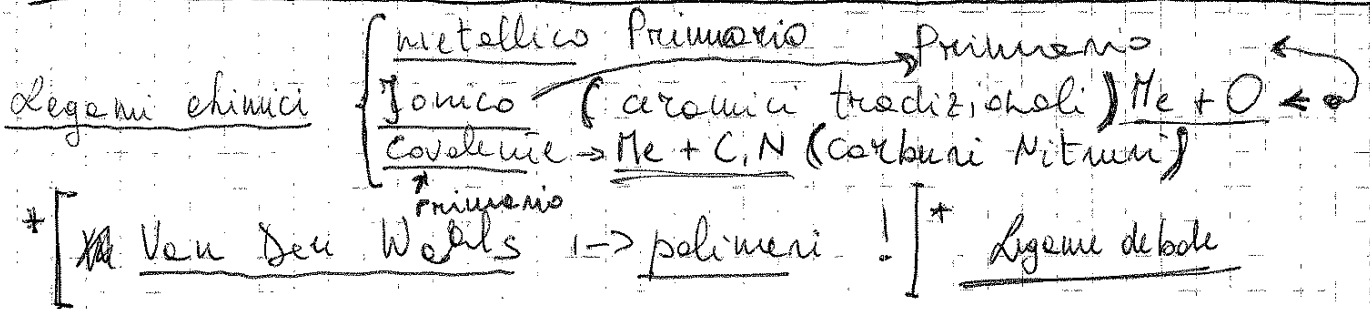 metallico Primario
Primario
Legami chimici { Jonico (ceramici tradizionali) Me + O
covalente → Me + C, N (Carburi Nitruri)
Primario
* [ Van Der Wahls |-> polimeri ! ] * Legame debole